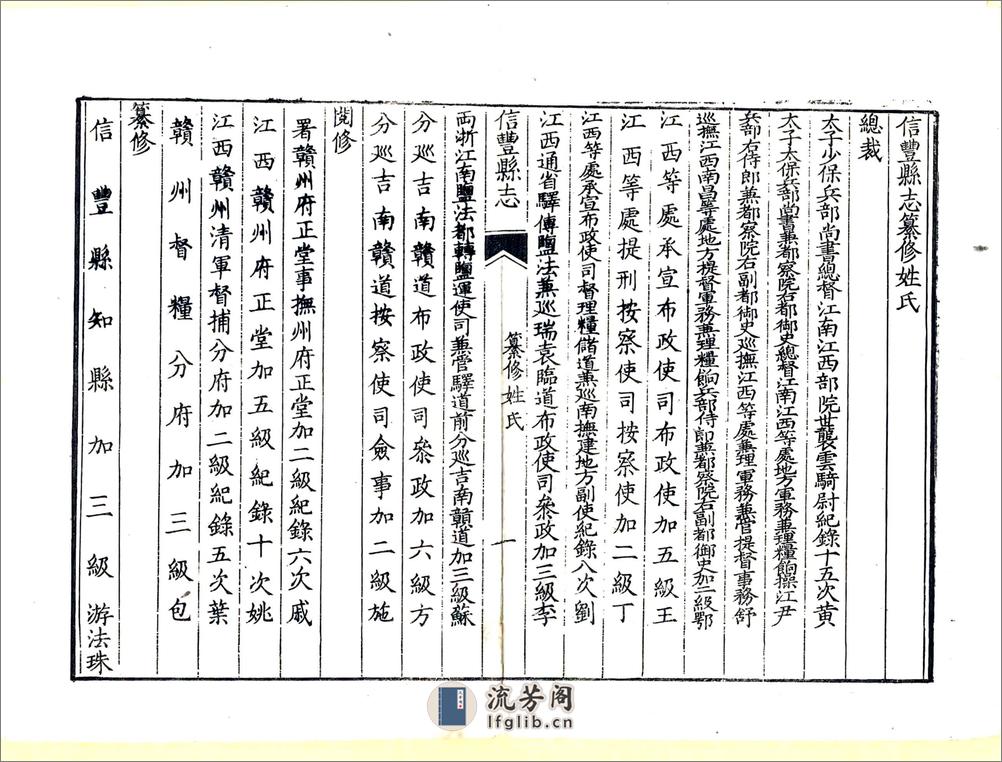 信豐縣志纂修姓氏
總裁
太子少保兵部尚書總督江南江西部院世襲雲騎尉紀錄十五次黃
太子太保兵部尚書兼都察院右都御史總督江南江西等處地方軍務兼理糧餉操江尹
兵部右侍郎兼都察院右副都御史巡撫江西等處兼理軍務兼管提督事務舒
巡撫江西南昌等處地方提督軍務兼理糧餉兵部侍郎兼都察院右副都御史加二級鄂
江西等處承宣布政使司布政使加五級王
江西等處提刑按察使司按察使加二級丁
江西等處承宣布政使司督理糧儲道兼巡南撫建地方副使紀錄八次劉
江西通省驛傳鹽法兼巡瑞袁臨道布政使司參政加三級李
信豐縣志
纂修姓氏
一
兩浙江南鹽法都轉鹽運使司兼管驛道前分巡吉南贛道加三級蘇
分巡吉南贛道布政使司參政加六級方
分巡吉南贛道按察使司僉事加二級施
閱修
署贛州府正堂事撫州府正堂加二級紀錄六次戚
江西贛州府正堂加五級紀錄十次姚
江西贛州清軍督捕分府加二級紀錄五次葉
贛州督糧分府加三級包
纂修
信豐縣知縣加三級游法珠
流芳阁
lfglib.cn